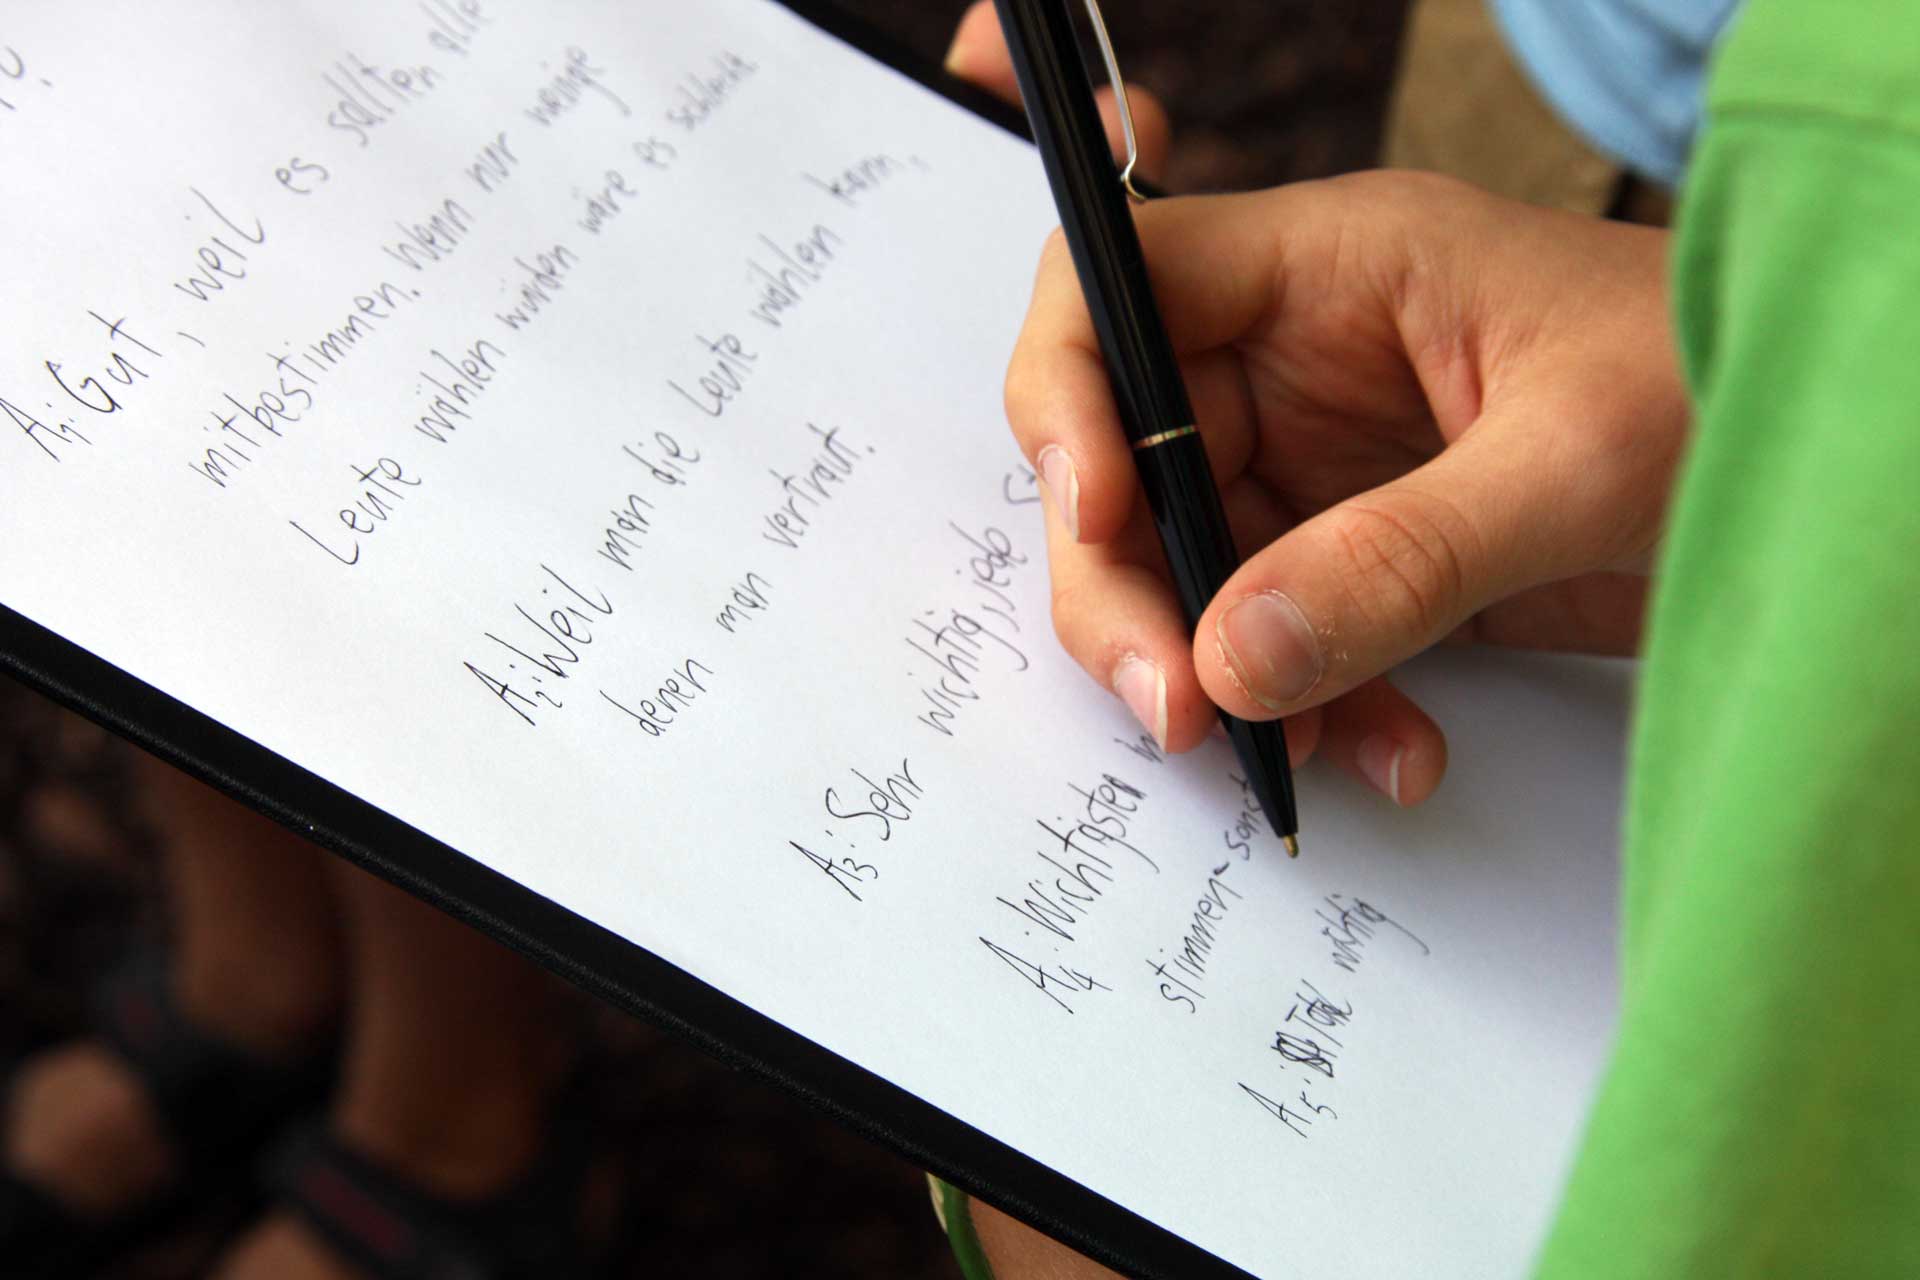 A1: Gut, weil es sollten alle
mitbestimmen. Wenn nur wenige
Leute wählen würden wäre es schlecht.
A2: Weil man die Leute wählen kann,
denen man vertraut.
A3: Sehr wichtig, jede
A4: Wichtigsten
stimmen - sonst
A5: Total wichtig